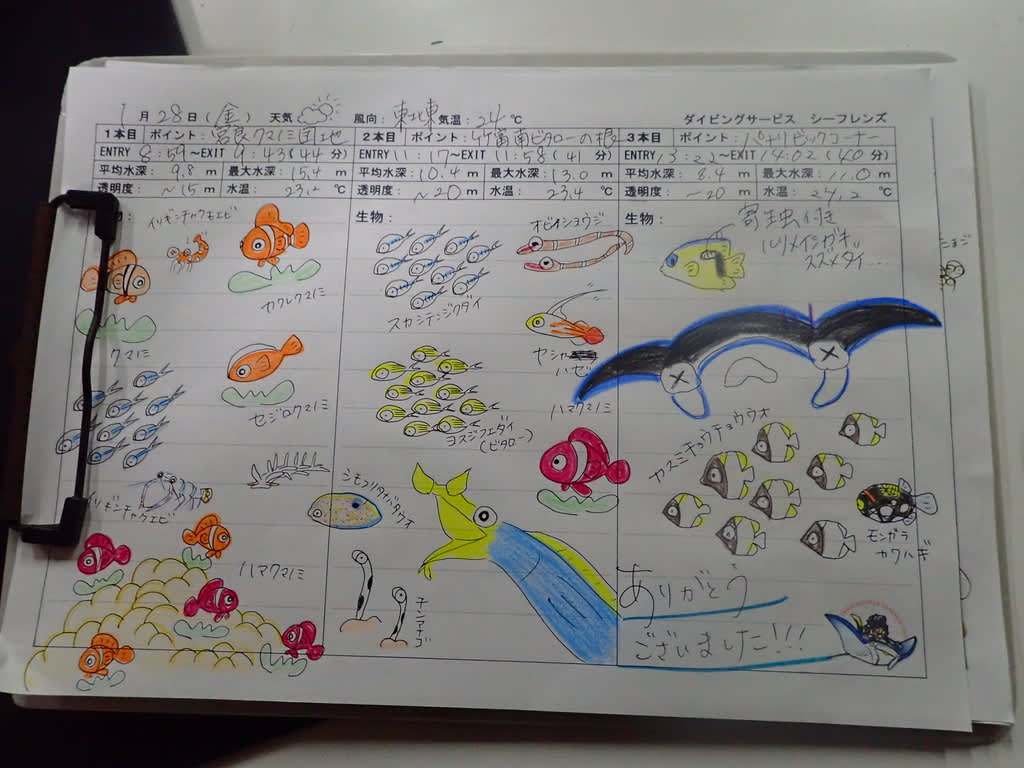 1月28日(金) 天気 風向: 東北東 気温: 24℃ ダイビングサービス シーフレンズ
1本目 ポイント: 宮良クマノミ団地
ENTRY 8:59~EXIT 9:43(44分)
平均水深: 9.8m 最大水深: 15.4m
透明度: ~15m 水温: 23.2℃
イソギンチャクモエビ
カクレクマノミ
クマノミ
セジロクマノミ
イソギンチャクエビ
ハマクマノミ
2本目 ポイント: 竹富南ビタローの根
ENTRY 11:17~EXIT 11:58(41分)
平均水深: 10.4m 最大水深: 13.0m
透明度: ~20m 水温: 23.4℃
生物:
オビイシヨウジ
スカシテンジクダイ
ヤシャ
ハゼ
ハマクマノミ
ヨスジフエダイ
(ビタロー)
シモフリタナバタウオ
チンアナゴ
3本目 ポイント: パナリビッグコーナー
ENTRY 13:22~EXIT 14:02(40分)
平均水深: 8.4m 最大水深: 11.0m
透明度: ~20m 水温: 24.2℃
生物:
寄生虫付き
スズメダイ…
カスミチョウチョウウオ
モンガラ
カワハギ
ありがとう
ございました!!!